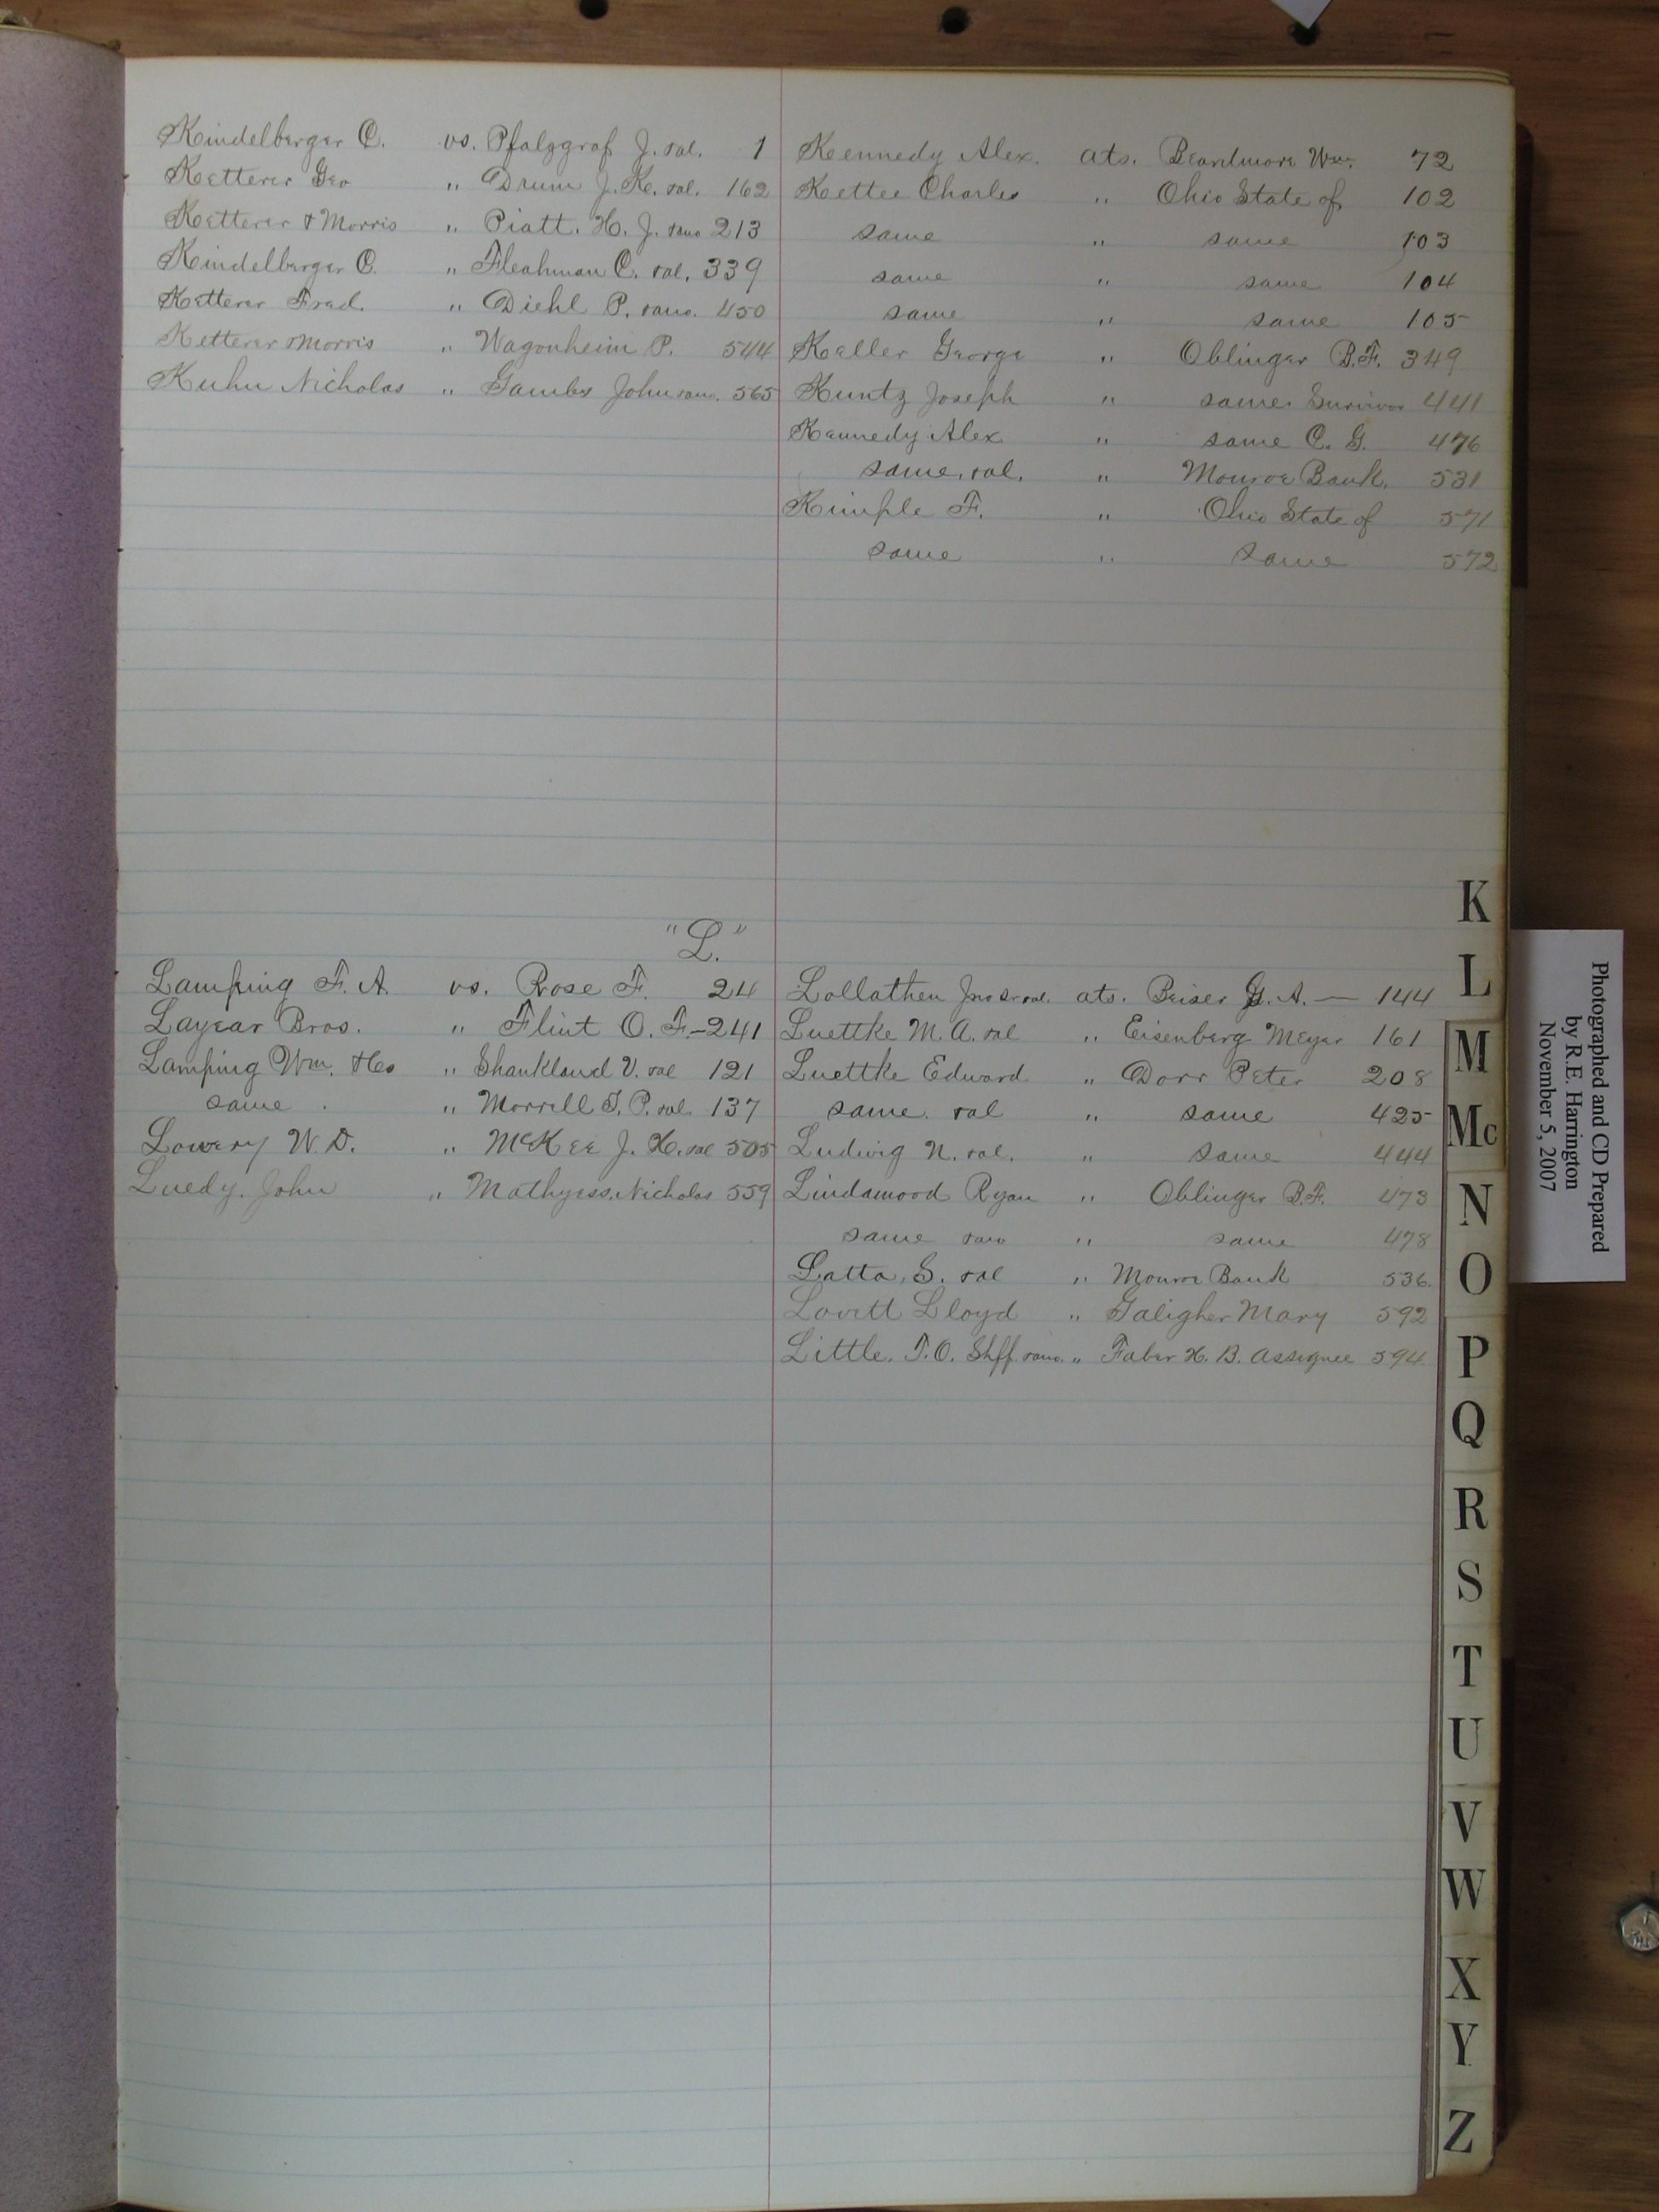 Kindelberger C. vs. Pfalzgraf J. et al. 1
Ketterer Geo " Drum J. K. et al. 162
Ketterer & Morris " Piatt. H. J. 213
Kindelberger C. " Fleahman C. et al. 339
Ketterer Fred. " Diehl P. 450
Ketterer Morris " Wagonheim P. 544
Kuhn Nicholas " Gambs John 565
Kennedy Alex. ats. Beardmore Wm. 72
Kettee Charles " Ohio State of 102
same " same 103
same " same 104
same " same 105
Keller George " Oblinger B.F. 349
Kuntz Joseph " same Survivor 441
Kennedy Alex " same C. G. 476
same et al. " Monroe Bank. 531
Kimple F. " Ohio State of 571
same " same 572
"L."
Lamping F. A. vs. Rose F. 24
Layear Bros. " Flint O. F.- 241
Lamping Wm. &Co " Shankland V. et al 121
same " Morrell T. P. et al. 137
Lowery W. D. " McKee J. H. et al 505
Luedy. John " Mathyess. Nicholas 559
Lollathen Jno Sr et al. ats. Beiser G. A. — 144
Luettke M. A. et al " Eisenberg Meyer 161
Luettke Edward " Dorr Peter 208
same et al " same 425
Ludwig N. et al. " same 444
Lindamood Ryan " Oblinger B.F. 473
same " same 478
Latta, S. et al " Monroe Bank 536
Lovett Lloyd " Galigher Mary 592
Little. T. O. Shff. " Faber H. B. Assignee 594
K
L
M
Mc
N
O
P
Q
R
S
T
U
V
W
X
Y
Z
Photographed and CD Prepared
by R.E. Harrington
November 5, 2007